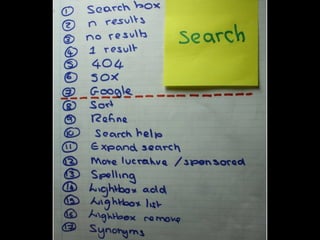 1 Search box
2 n results
3 no results
4 1 result
5 404
6 50x
7 Google
8 Sort
9 Refine
10 Search help
11 Expand search
12 More lucrative / sponsored
13 Spelling
14 Lightbox add
15 Lightbox list
16 Lightbox remove
17 Synonyms
Search